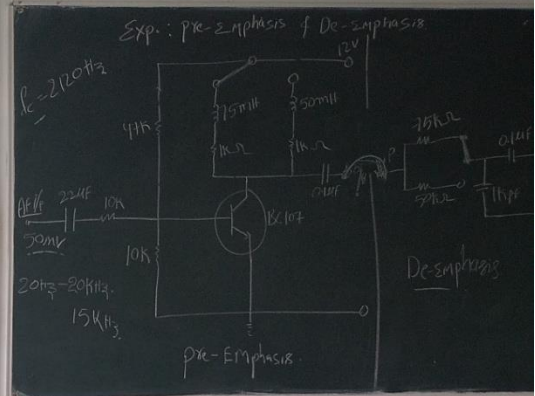 Exp.: pre-Emphasis & De-Emphasis
fc = 2120Hz
12V
75mH
50mH
47K
1KΩ
1KΩ
75KΩ
0.1μF
0.1μF
AF I/P
22μF
10K
BC107
50KΩ
1Kpf
50mV
10K
20Hz-20KHz.
15KHz.
De-emphasis
pre-Emphasis.